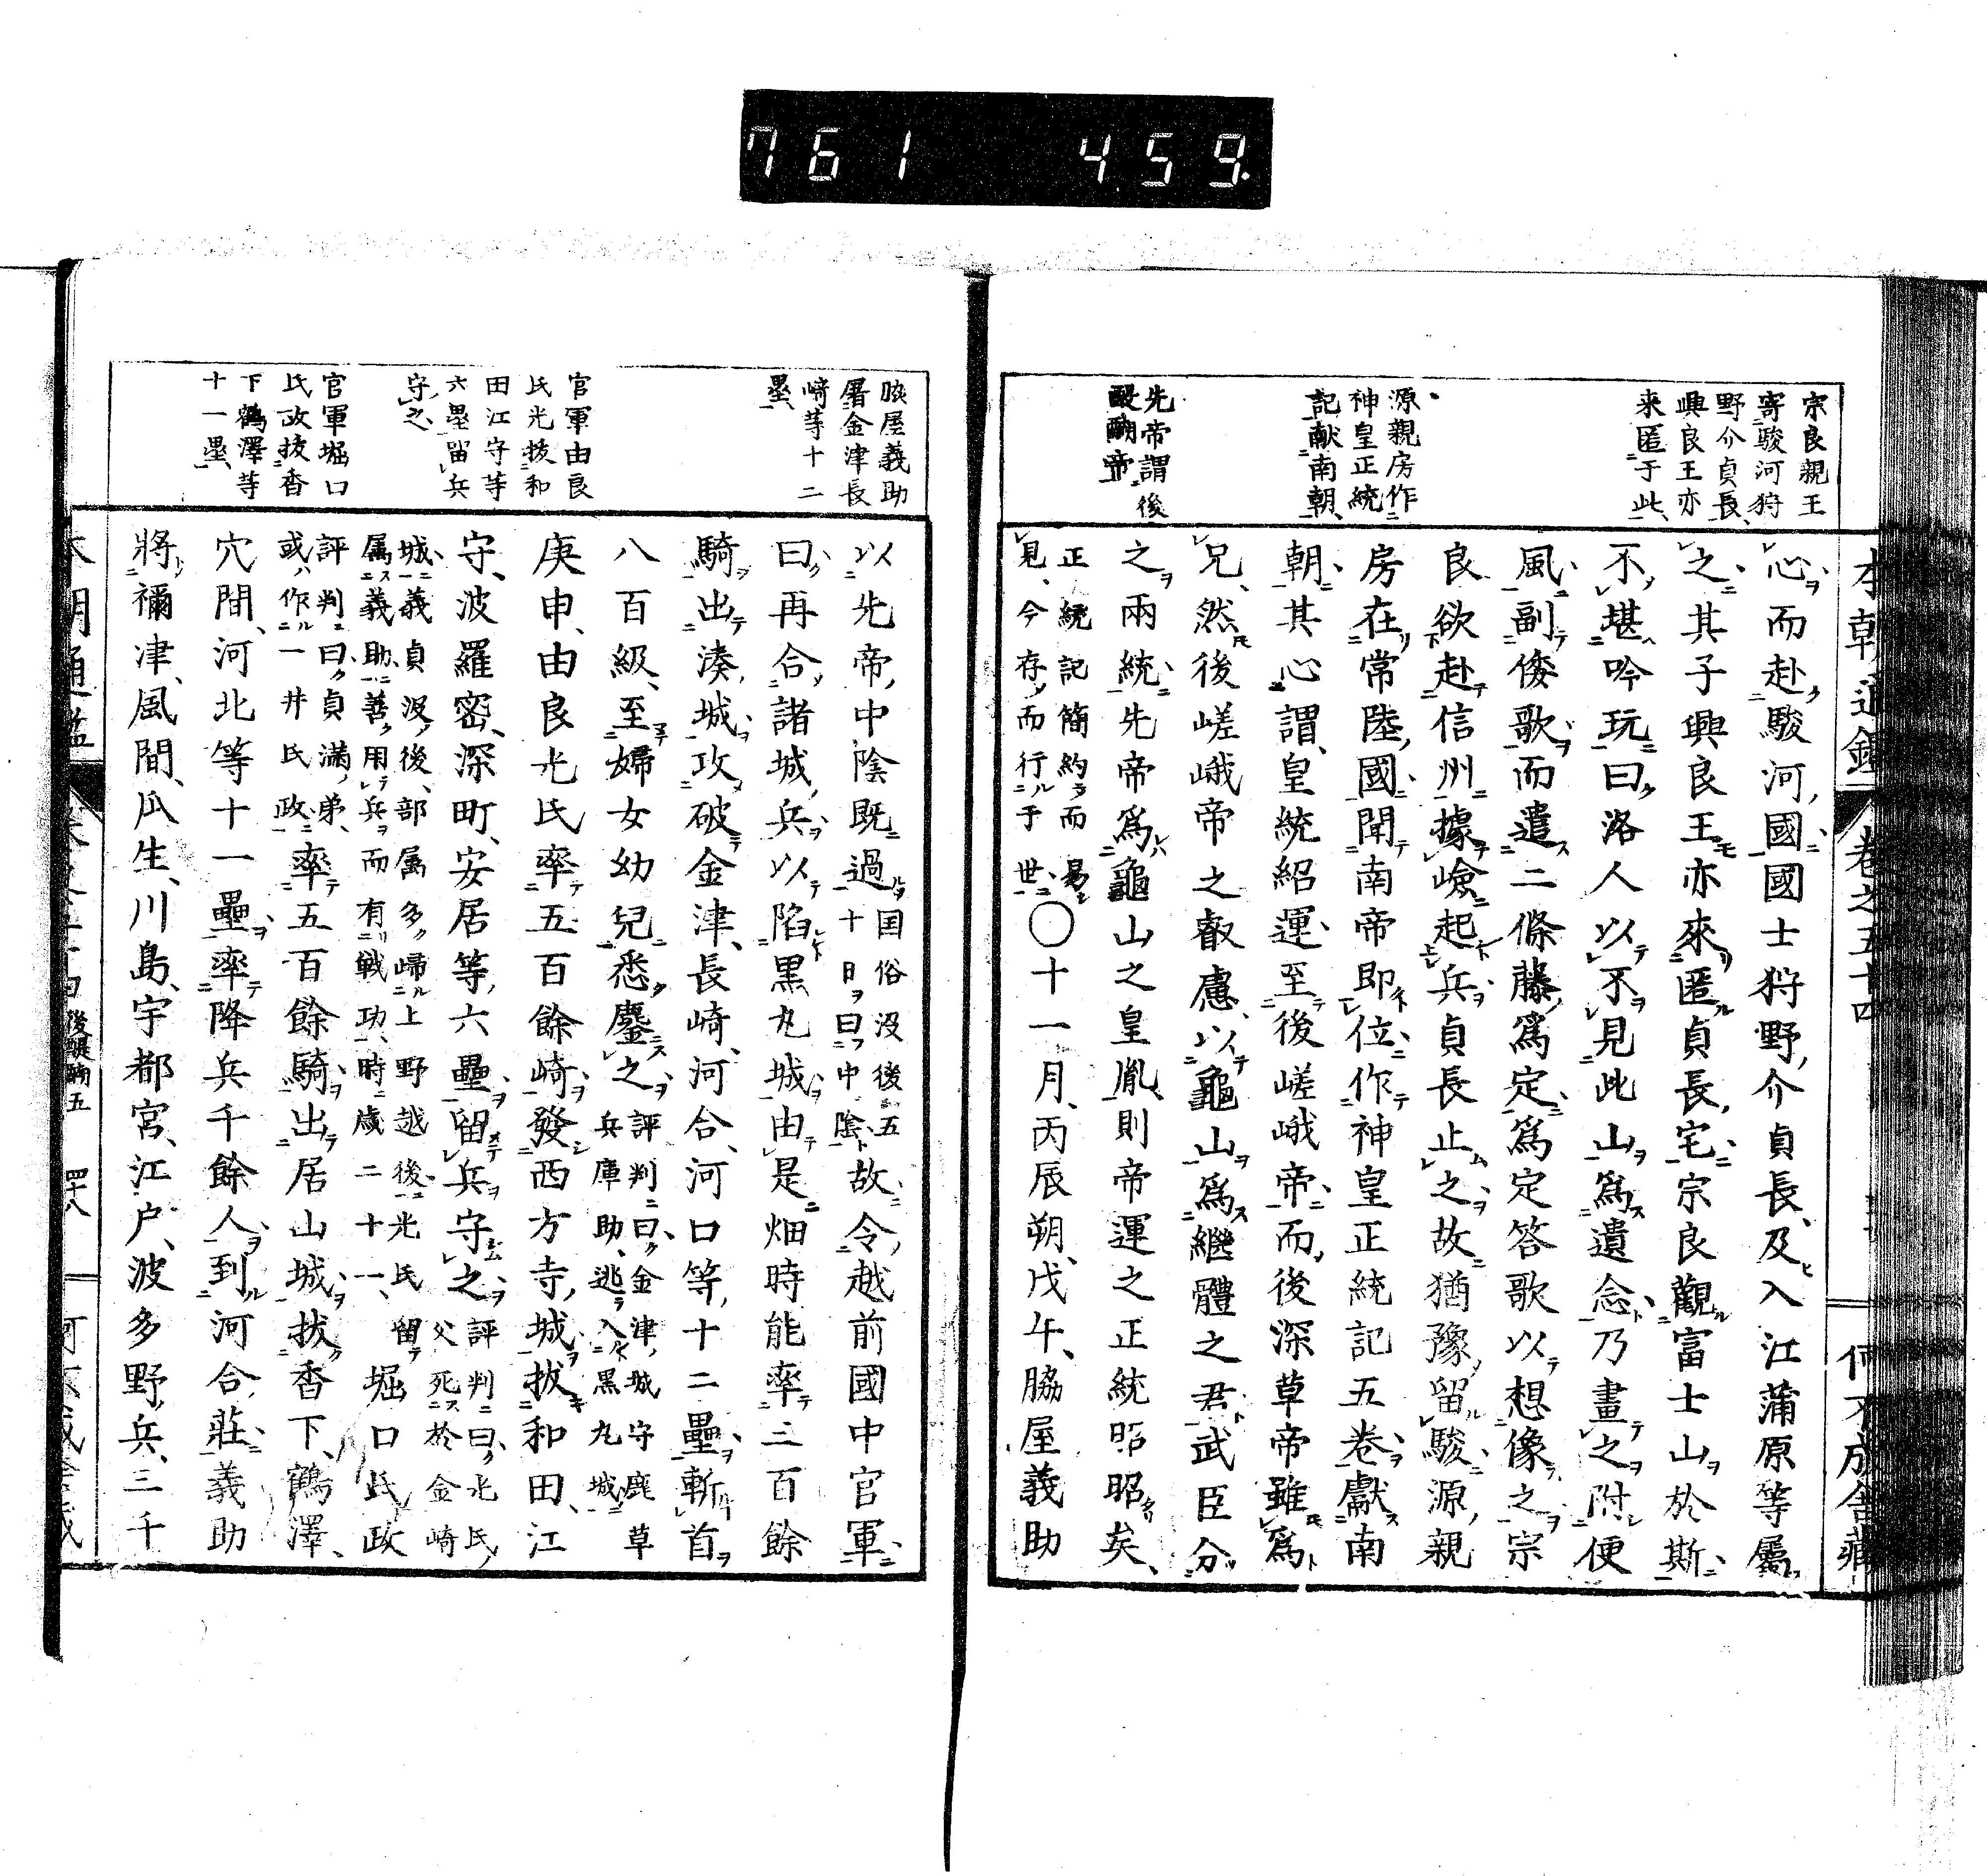 761 459.
本朝通鑑 卷之五十四 何不成舍藏
宗良親王
寄駿河狩
野介貞長、
興良王亦
来匿于此、
源親房作
神皇正統
記献南朝、
先帝謂後
醍醐帝
心而赴駿河國國士狩野介貞長及入江蒲原等屬
之其子興良王亦來匿貞長宅宗良觀富士山於斯
不堪吟玩曰洛人以不見此山爲遺念乃畫之附便
風副倭歌而遣二條藤爲定爲定答歌以想像之宗
良欲赴信州據嶮起兵貞長止之故猶豫留駿源親
房在常陸國聞南帝即位作神皇正統記五卷獻南
朝其心謂皇統紹運至後嵯峨帝而後深草帝雖爲
兄然後嵯峨帝之叡慮以龜山爲繼體之君武臣分
之兩統先帝爲龜山之皇胤則帝運之正統昭昭矣、
正統記簡約而易
見、今存而行于世
〇十一月丙辰朔、戊午、脇屋義助
脇屋義助
屠金津長
﨑等十二
壘、
官軍由良
氏光拔和
田江守等
六壘留兵
守之、
官軍堀口
氏政拔香
下鶴澤等
十一壘、
以先帝中陰既過
国俗没後五
十日曰中陰
故令越前國中官軍
曰再合諸城兵以陷黒丸城由是畑時能率三百餘
騎出湊城攻破金津、長崎、河合、河口等十二壘斬首
八百級、至婦女幼兒悉鏖之
評判曰金津城守鹿草
兵庫助逃入黒丸城
庚申、由良光氏率五百餘﨑發西方寺城拔和田、江
守、波羅密、深町、安居等六壘留兵守之
評判曰光氏
父死於金﨑
城義貞没後部属多歸上野越後光氏留
属義助善用兵而有戦功時歳二十一、
堀口氏政
評判曰貞滿弟、
或作一井氏政
率五百餘騎出居山城拔香下、鶴澤、
穴間、河北等十一壘率降兵千餘人到河合莊義助
將禰津、風間、瓜生、川島、宇都宮、江戸、波多野兵三千
本朝通鑑 後醍醐五 四十八